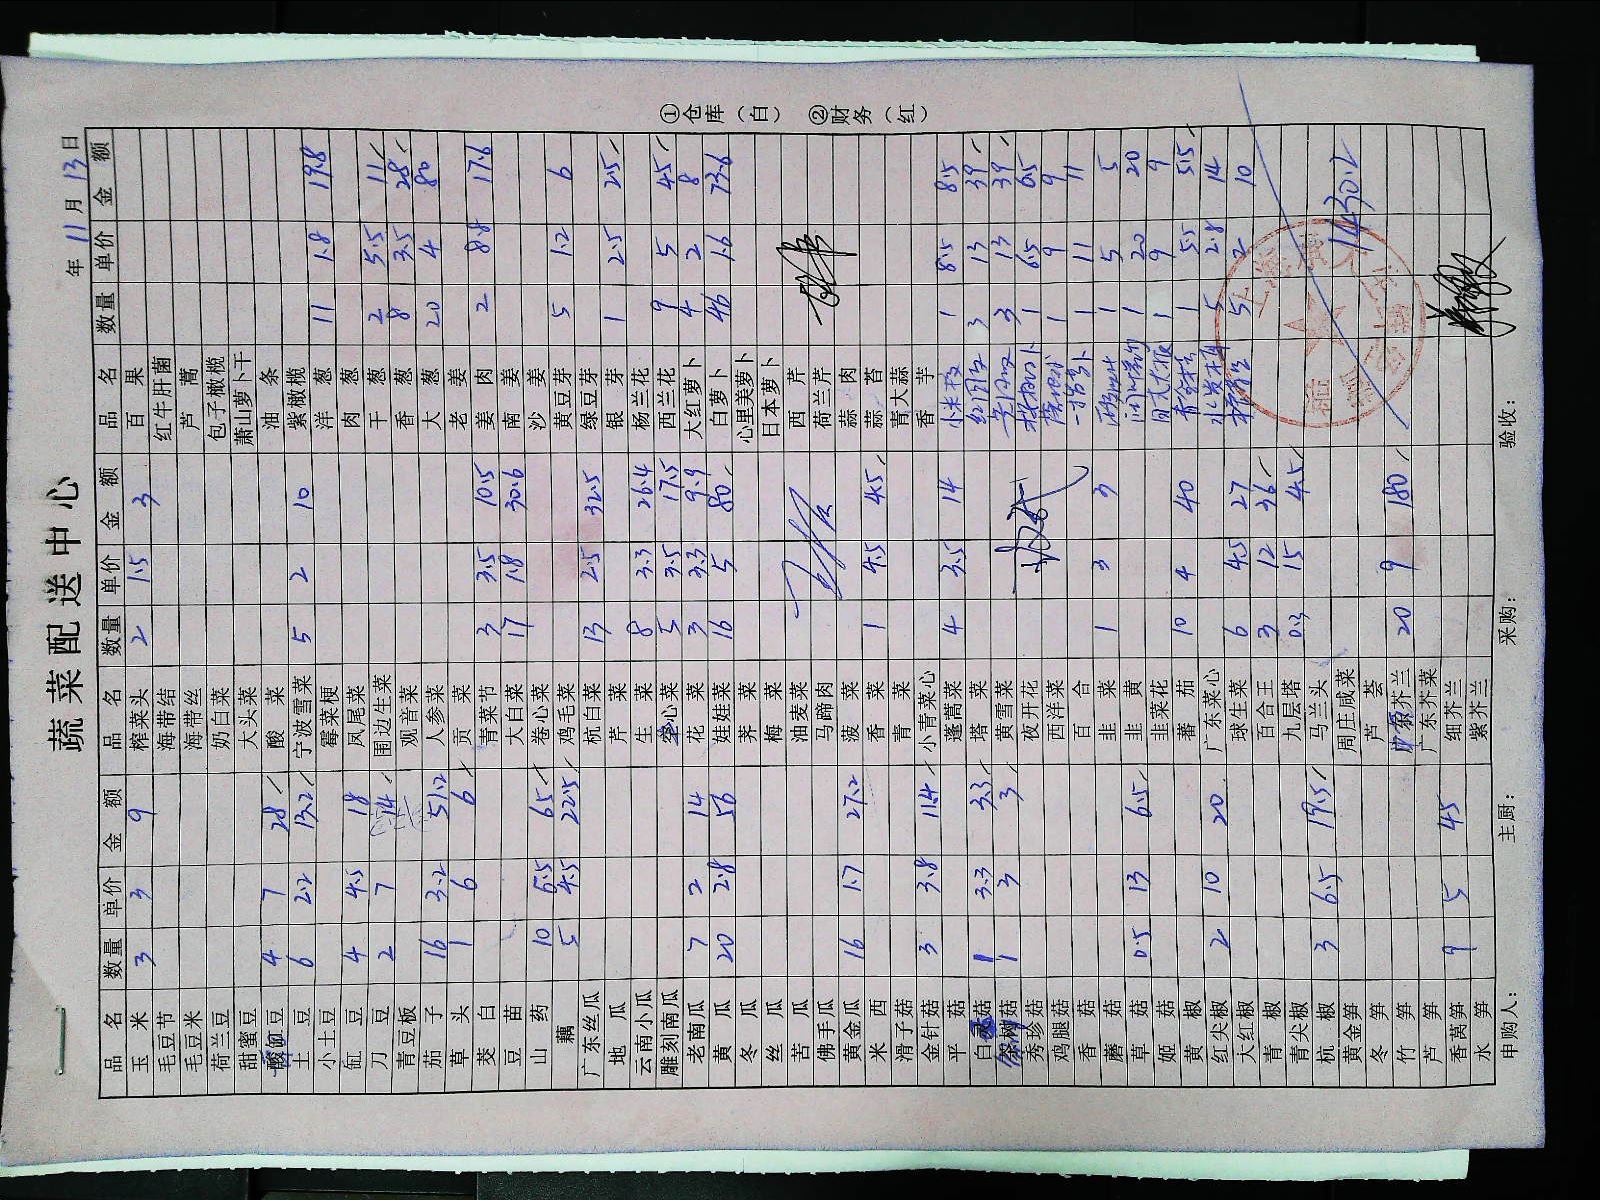 蔬菜配送中心
年 11 月 13 日
品名 数量 单价 金额 品名 数量 单价 金额 品名 数量 单价 金额
玉米 3 3 9 榨菜头 2 1.5 3 百果
毛豆节 海带结 红牛肝菌
毛豆米 海带丝 芦蒿
荷兰豆 奶白菜 包子橄榄
甜蜜豆 大头菜 萧山萝卜干
豇豆 4 7 28 酸菜 油条
土豆 6 2.2 13.2 宁波雪菜 5 2 10 紫橄榄
小土豆 霉菜梗 洋葱 11 1.8 19.8
缸豆 4 4.5 18 凤尾菜 肉葱
刀豆 2 7 14 围边生菜 干葱 2 5.5 11
青豆板 观音菜 香葱 8 3.5 28
茄子 16 3.2 51.2 人参菜 大葱 20 4 80
草头 1 6 6 贡菜 老姜
茭白 青菜节 3 3.5 10.5 姜肉 2 8.8 17.6
豆苗 大白菜 17 1.8 30.6 南姜
山药 10 6.5 65 卷心菜 沙姜
藕 5 4.5 22.5 鸡毛菜 黄豆芽 5 1.2 6
广东丝瓜 杭白菜 13 2.5 32.5 绿豆芽
地瓜 芹菜 银芽 1 2.5 2.5
云南小瓜 生菜 8 3.3 26.4 杨兰花
雕刻南瓜 空心菜 5 3.5 17.5 西兰花 9 5 45
老南瓜 7 2 14 花菜 3 3.3 9.9 大红萝卜 4 2 8
黄瓜 20 2.8 56 娃娃菜 16 5 80 白萝卜 46 1.6 73.6
冬瓜 荠菜 心里美萝卜
丝瓜 梅菜 日本萝卜
苦瓜 油麦菜 西芹
佛手瓜 马蹄肉 荷兰芹
黄金瓜 16 1.7 27.2 菠菜 蒜肉
米西 香菜 1 4.5 4.5 蒜苔
滑子菇 青菜 青大蒜
金针菇 3 3.8 11.4 小青菜心 香芋
平菇 蓬蒿菜 4 3.5 14 小米椒 1 8.5 8.5
白灵菇 1 3.3 3.3 塔菜 红圆椒 3 13 39
茶树菇 1 3 3 黄雪菜 3 13 39
秀珍菇 夜开花 1 6.5 6.5
鸡腿菇 西洋菜 1 9 9
香菇 百合 1 11 11
蘑菇 韭菜 1 3 3 1 5 5
草菇 0.5 13 6.5 韭黄 1 20 20
姬菇 韭菜花 1 9 9
黄椒 蕃茄 10 4 40 1 55 55
红尖椒 2 10 20 广东菜心 5 2.8 14
大红椒 球生菜 6 4.5 27 5 2 10
青椒 百合王 3 12 36
青尖椒 九层塔 0.3 15 4.5
杭椒 3 6.5 19.5 马兰头 1430.2
黄金笋 周庄咸菜
冬笋 芦荟
竹笋 芥兰 20 9 180
芦笋 广东芥菜
香莴笋 9 5 45 细芥兰
水笋 紫芥兰
申购人： 主厨： 采购： 验收：
①仓库（白） ②财务（红）